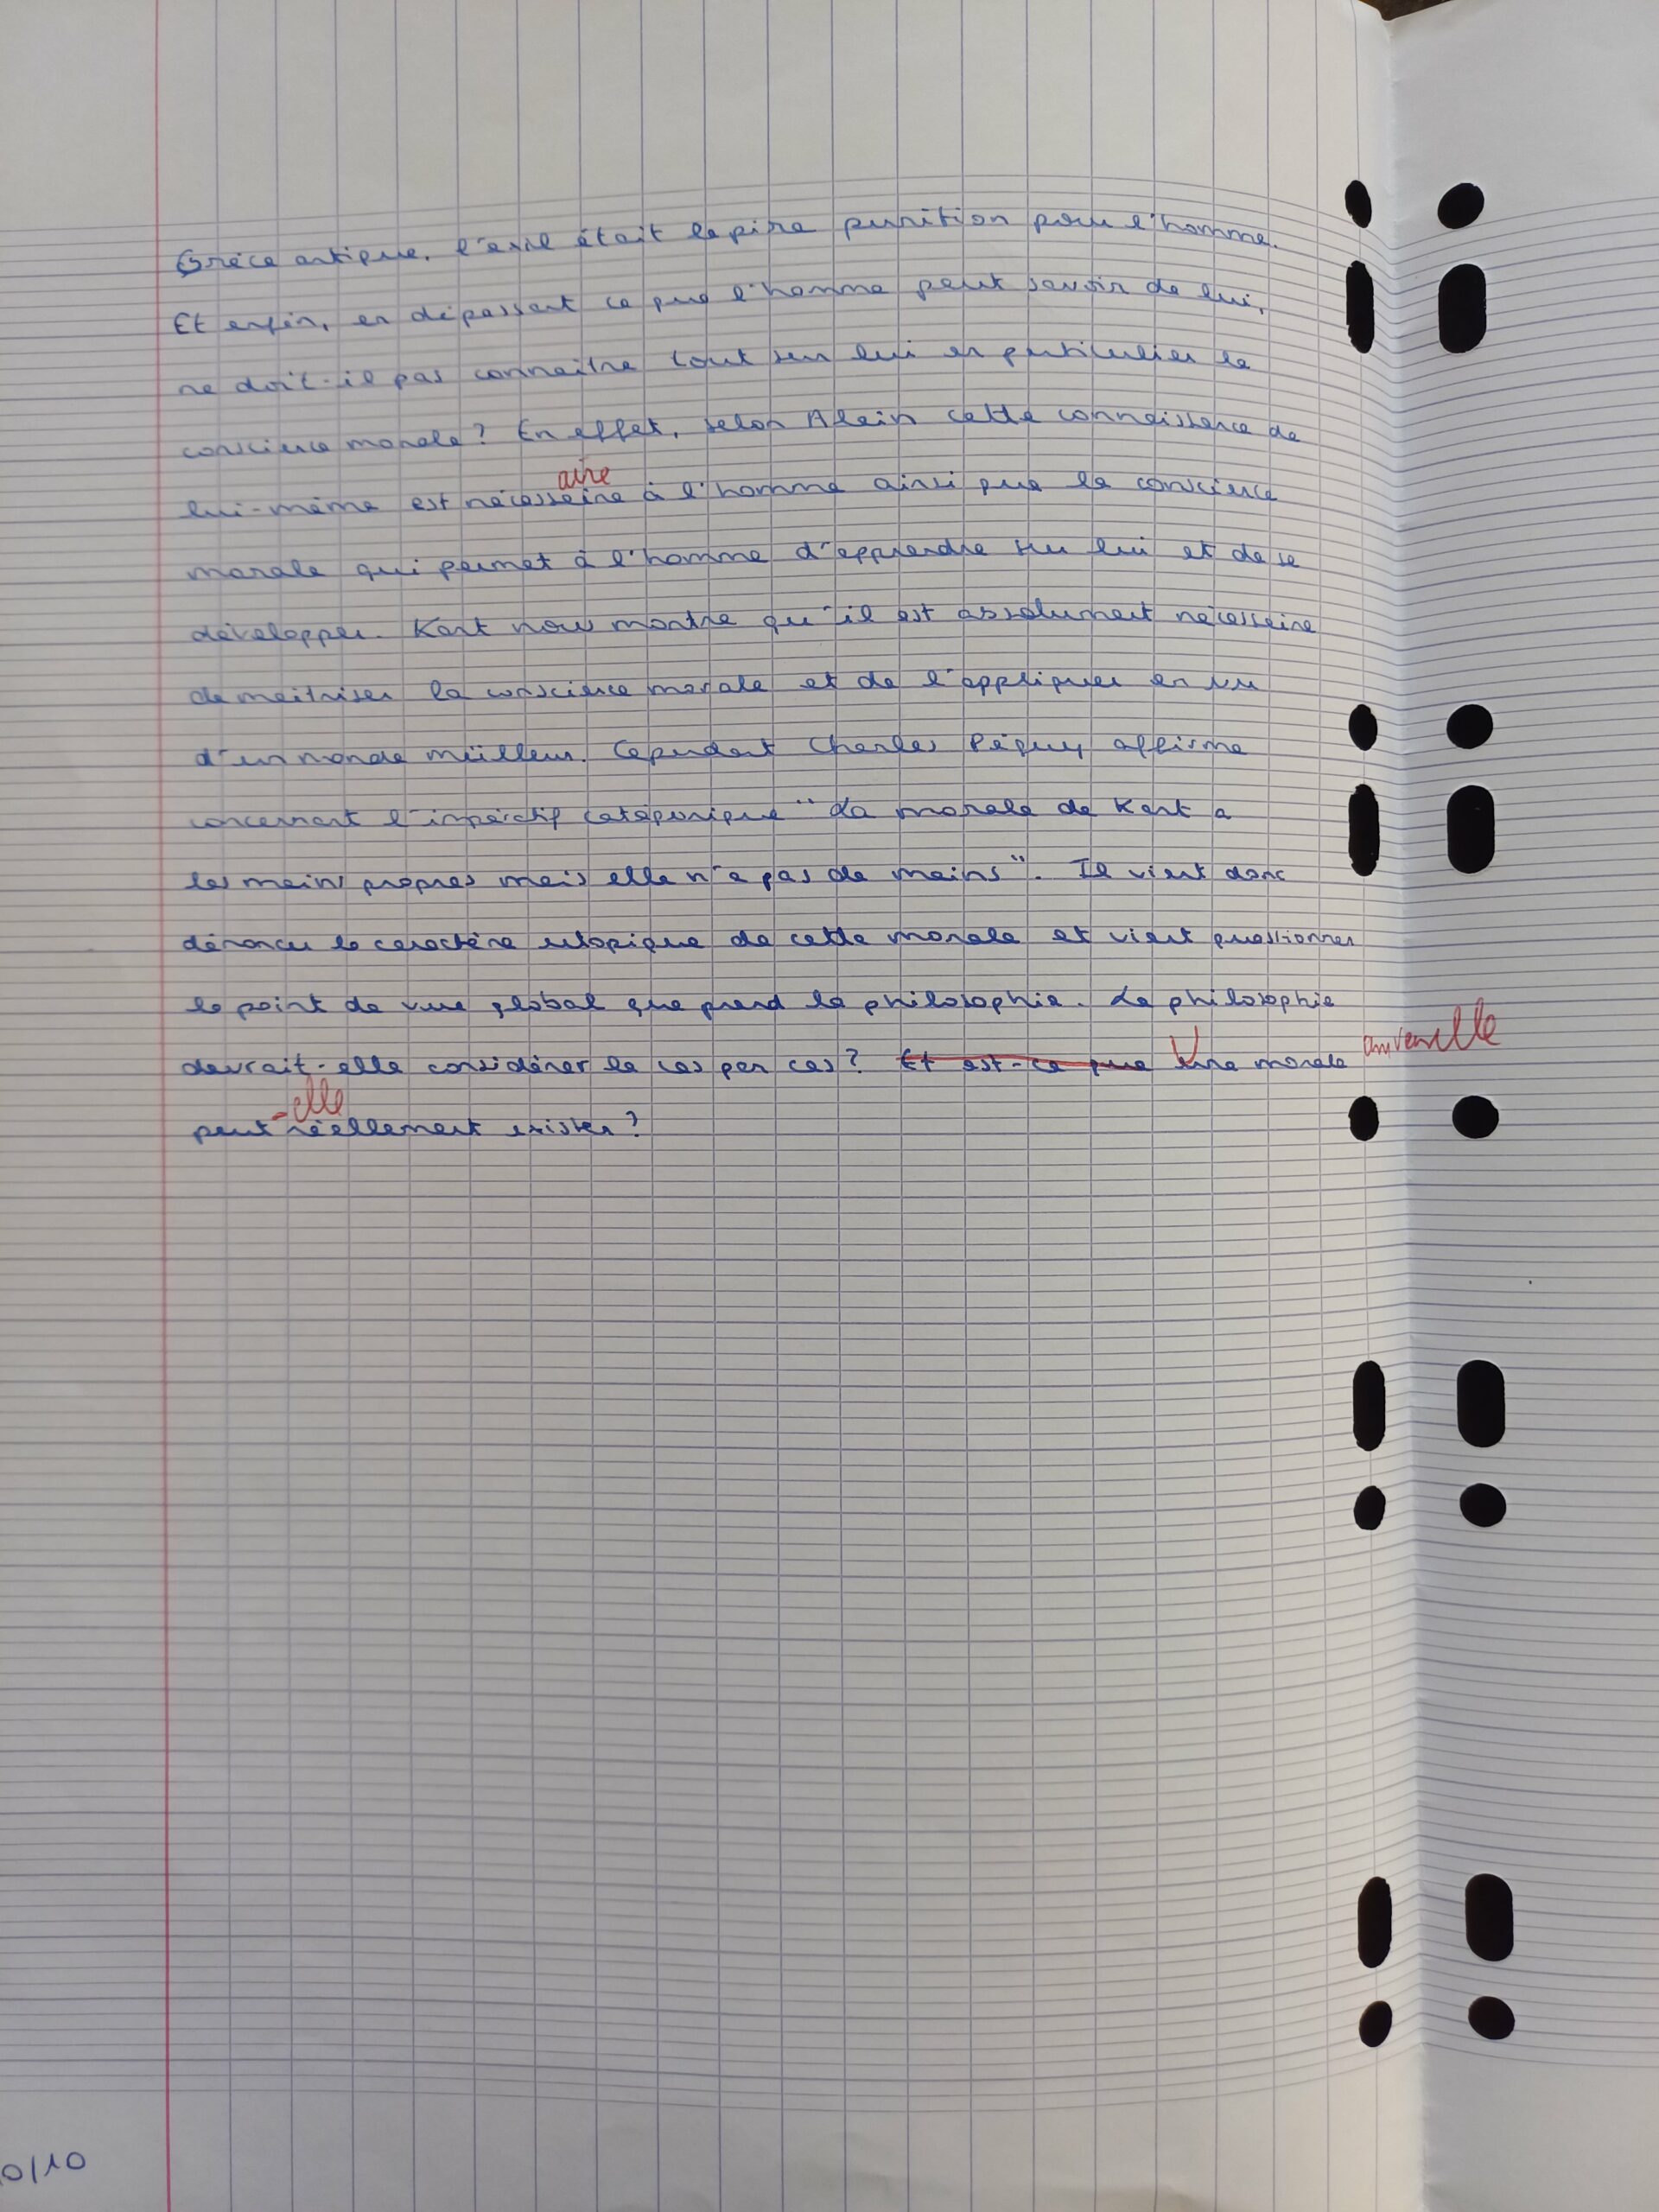 Grèce antique, l'exil était la pire punition pour l'homme.
Et enfin, en dépassant ce que l'homme peut savoir de lui,
ne doit-il pas connaître tout sur lui en particulier la
conscience morale? En effet, selon Alain cette connaissance de
aire
lui-même est nécessaire à l'homme ainsi que la conscience
morale qui permet à l'homme d'apprendre sur lui et de se
développer. Kant nous montre qu'il est absolument nécessaire
de maitriser la conscience morale et de l'appliquer en vu
d'un monde meilleur. Cependant Charles Péguy affirme
concernant l'impératif catégorique "La morale de Kant a
les mains propres mais elle n'a pas de mains". Il vient donc
dénoncer le caractère utopique de cette morale et vient questionner
le point de vue global que prend la philosophie. La philosophie
devrait-elle considérer le cas par cas? Et est-ce que Une morale universelle
-elle
peut réellement exister?
0/10